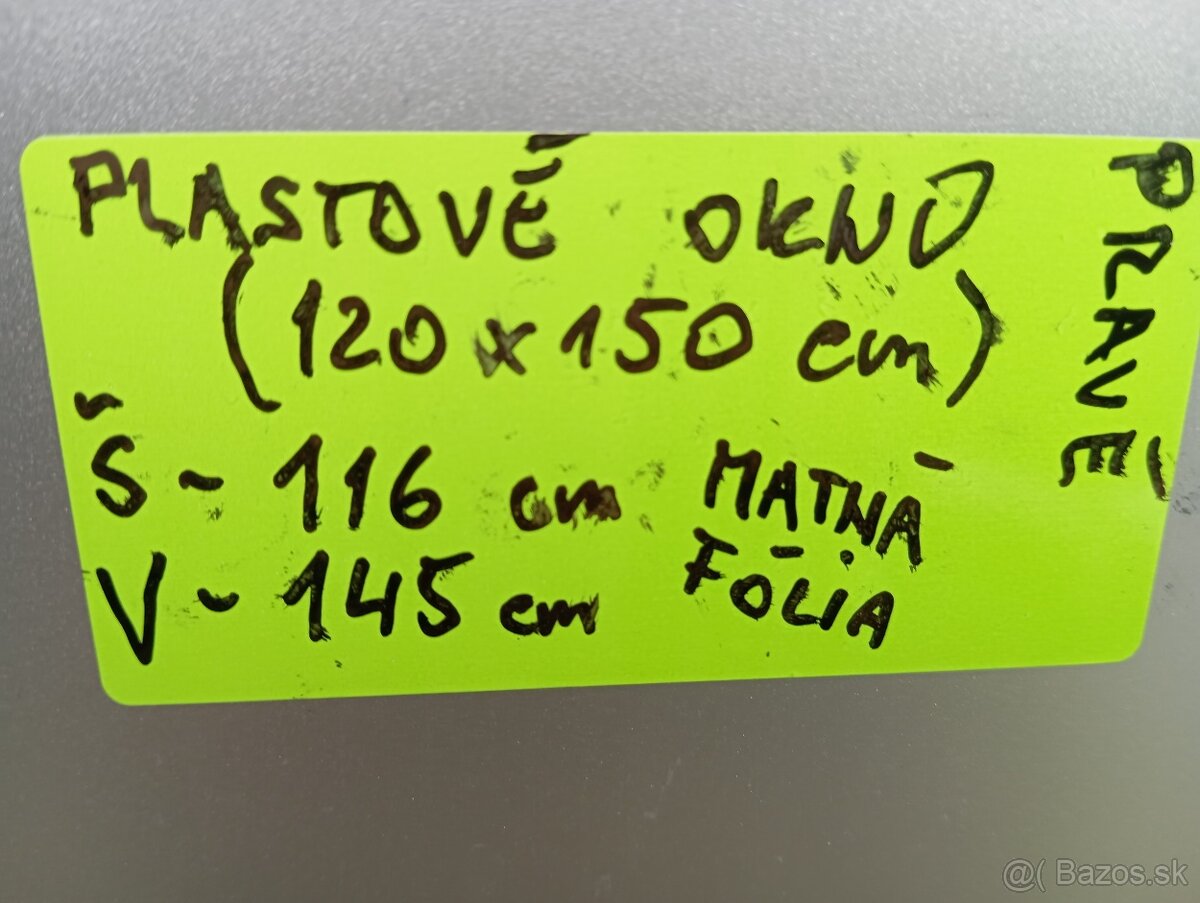 PLASTOVÉ OKNO
(120 x 150 cm)
Š - 116 cm
V - 145 cm
MATNÁ
FÓLIA
PRAVÉ
@( Bazos.sk